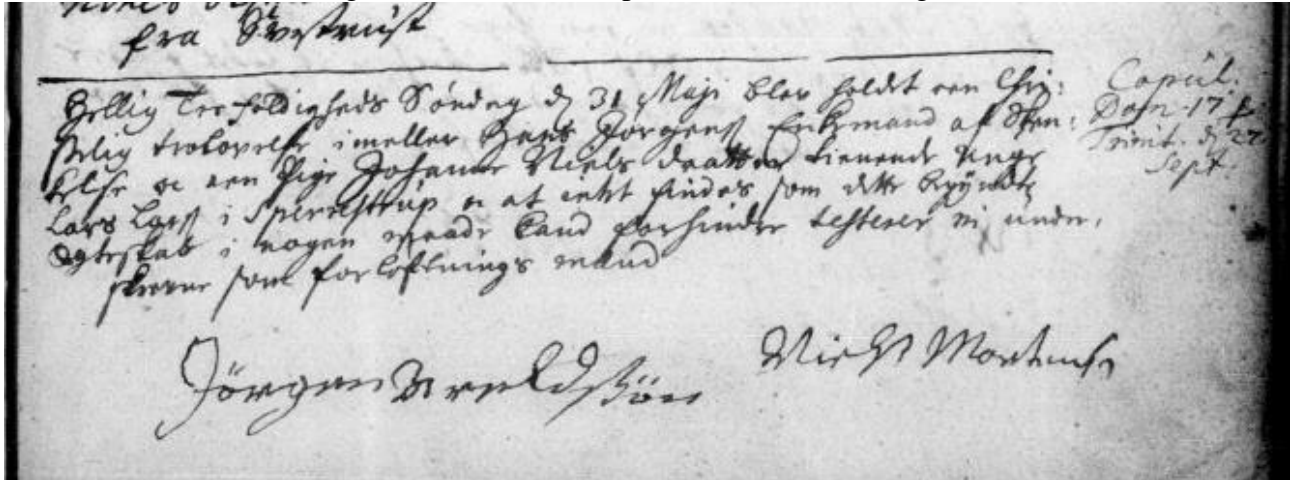 fra Svestrup
Hellig Trefoldigheds Søndag d 31 Maji blev holdt een Chri-
stelig trolovelse imellem Hans Jørgens Enkemand af Sten-
og een Pige Johanne Niels daatter tienende unge
Lars Lars i Sperrestrup og at intet findes som dette begyndte
Ægteskab i nogen maade kand forhindre testerer vi under-
skrevne som forloftnings mænd
Copul.
Dom. 17 p
Trinit. d. 27
Sept.
Jørgen
Niels Mortens